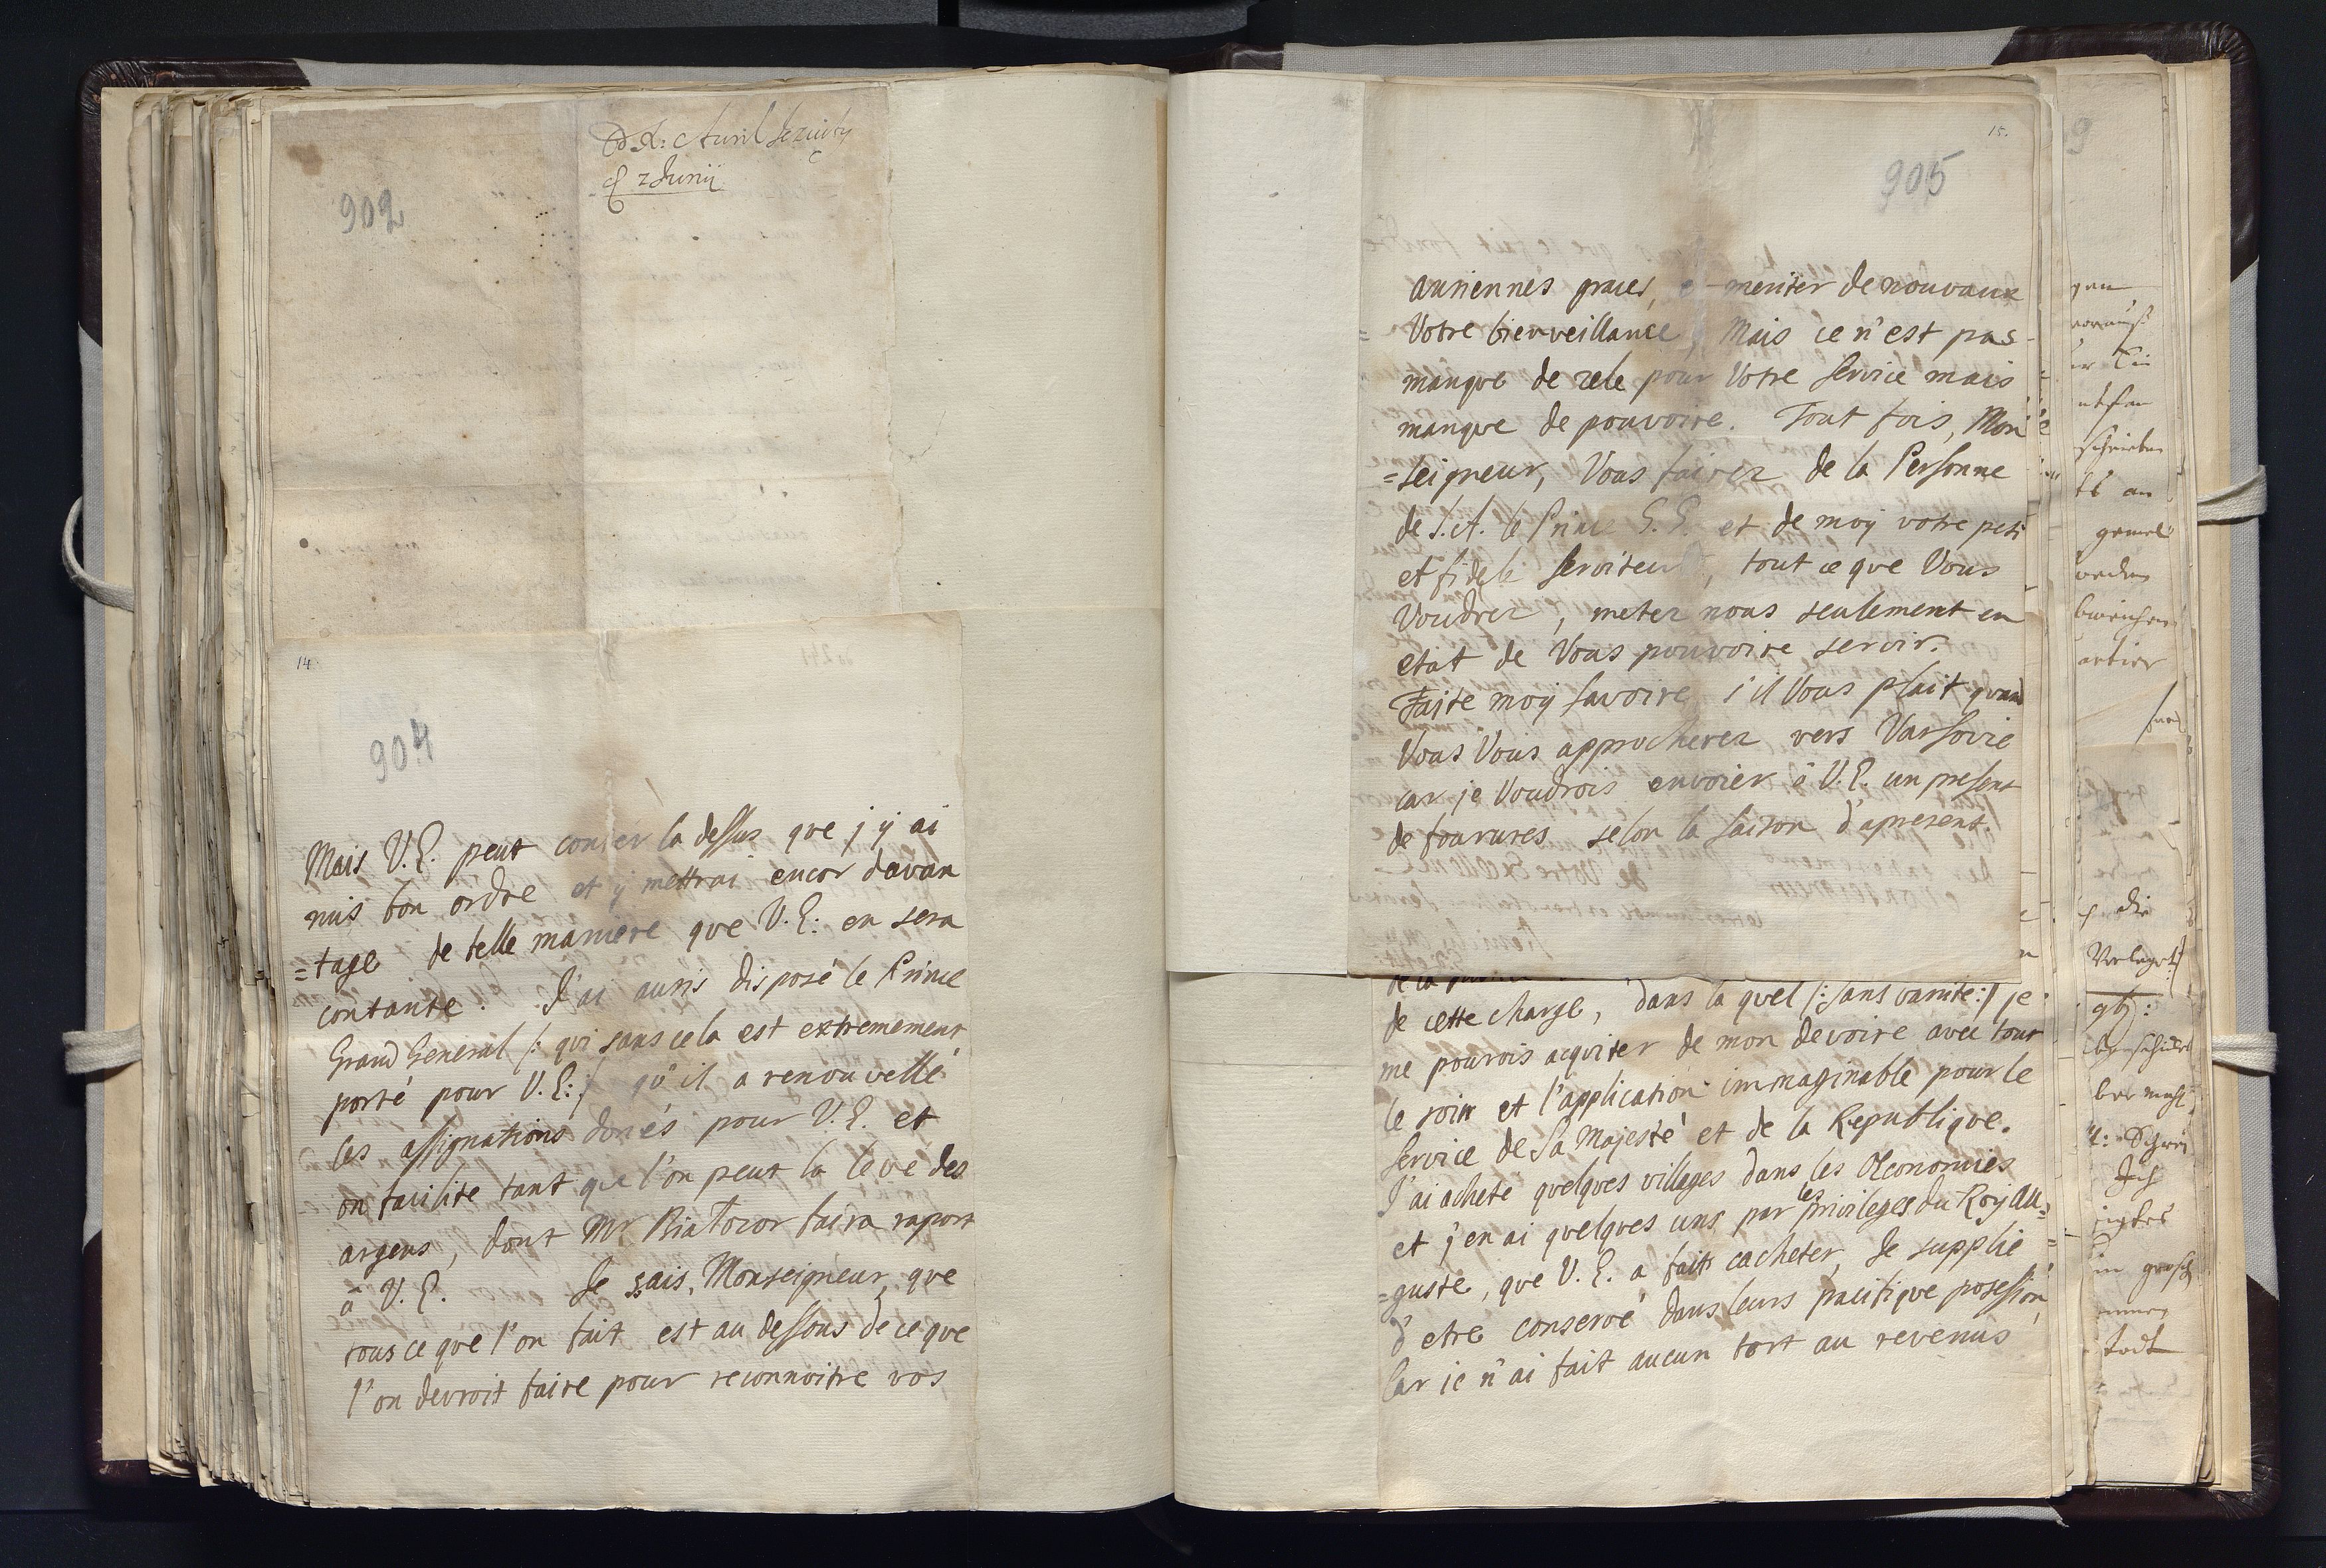 902
2 Junii
14
904
Mais V. E. peut conter la dessus que j'y ai
mis bon ordre et y mettrai encor davan
=tage de telle maniere que V. E: en sera
contante. J'ai aussi disposé le Prince
Grand General /: qui sans cela est extremement
porté pour V. E: / qu'il a renouvellé
les assignations donés pour V. E. et
on facilite tant que l'on peut la levé des
argens, dont Mr. Białozor faira raport
à V. E. Je sais, Monseigneur, que
tous ce que l'on fait est au dessous de ce que
l'on devroit faire pour reconnoitre vos
15.
905
anciennes graces, et meriter de nouvaux
Votre bienveillance, Mais ce n'est pas
manque de zele pour Votre service mais
manque de pouvoire. Tout fois, Mon
=seigneur, Vous fairez de la Personne
de S. A. le Prince G. G. et de moy votre peti
et fidele serviteur, tout ce que Vous
Voudrez, metez nous seulement en
etat de Vous pouvoire servir.
Faite moy savoire s'il Vous plait quand
Vous Vous approcherez vers Varsovie
car je Voudrois envoier à V. E. un present
de fourures selon la saison d'apresent.
de la
de cette charge, dans la quel /: sans vanité :/ je
me pourois acquiter de mon devoire avec tout
le soin et l'application immaginable pour le
service de Sa Majesté et de la Republique.
J'ai acheté quelques villages dans les Œconomies
et j'en ai quelques uns par les privileges du Roy Au=
=guste, que V. E. a fait cacheter, Je supplie
d'etre conservé dans leurs pacifique posession
Car je n'ai fait aucun tort au revenus
9
an
gemel
artier
die
Verlegt
Ich
in
todt